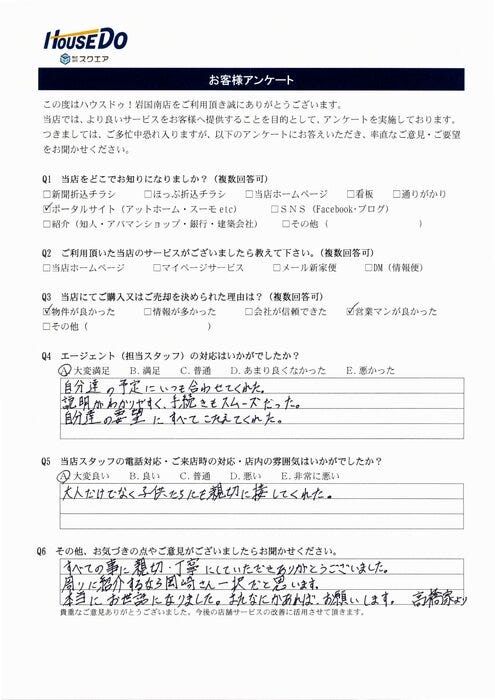 HOUSEDO
株式会社スクエア
お客様アンケート
この度はハウスドゥ！岩国南店をご利用頂き誠にありがとうございます。
当店では、より良いサービスをお客様へ提供することを目的として、アンケートを実施しております。
つきましては、ご多忙中恐れ入りますが、以下のアンケートにお答えいただき、率直なご意見・ご要望
をお聞かせください。
Q1 当店をどこでお知りになりましたか？（複数回答可）
□新聞折込チラシ □ほっぷ折込チラシ □当店ホームページ □看板 □通りがかり
☑ポータルサイト（アットホーム・スーモ etc） □ＳＮＳ（Facebook・ブログ）
□紹介（知人・アパマンショップ・銀行・建築会社） □その他（ ）
Q2 ご利用頂いた当店のサービスがございましたら教えて下さい。（複数回答可）
□当店ホームページ □マイページサービス □メール新家便 □DM（情報便）
Q3 当店にてご購入又はご売却を決められた理由は？（複数回答可）
☑物件が良かった □情報が多かった □会社が信頼できた ☑営業マンが良かった
□その他（ ）
Q4 エージェント（担当スタッフ）の対応はいかがでしたか？
Ⓐ大変満足 B. 満足 C. 普通 D. あまり良くなかった E. 悪かった
自分達の予定にいつも合わせてくれた。
説明がわかりやすく、手続きもスムーズだった。
自分達の要望にすべてこたえてくれた。
Q5 当店スタッフの電話対応・ご来店時の対応・店内の雰囲気はいかがでしたか？
Ⓐ大変良い B. 良い C. 普通 D. 悪い E. 非常に悪い
大人だけでなく子供たちにも親切に接してくれた。
Q6 その他、お気づきの点やご意見がございましたらお聞かせください。
すべての事に親切・丁寧にしていただきありがとうございました。
周りに紹介するなら岡崎さん一択だと思います。
本当にお世話になりました。またなにかあれば、お願いします。 高橋家より
貴重なご意見ありがとうございました。今後の店舗サービスの改善に活用させて頂きます。